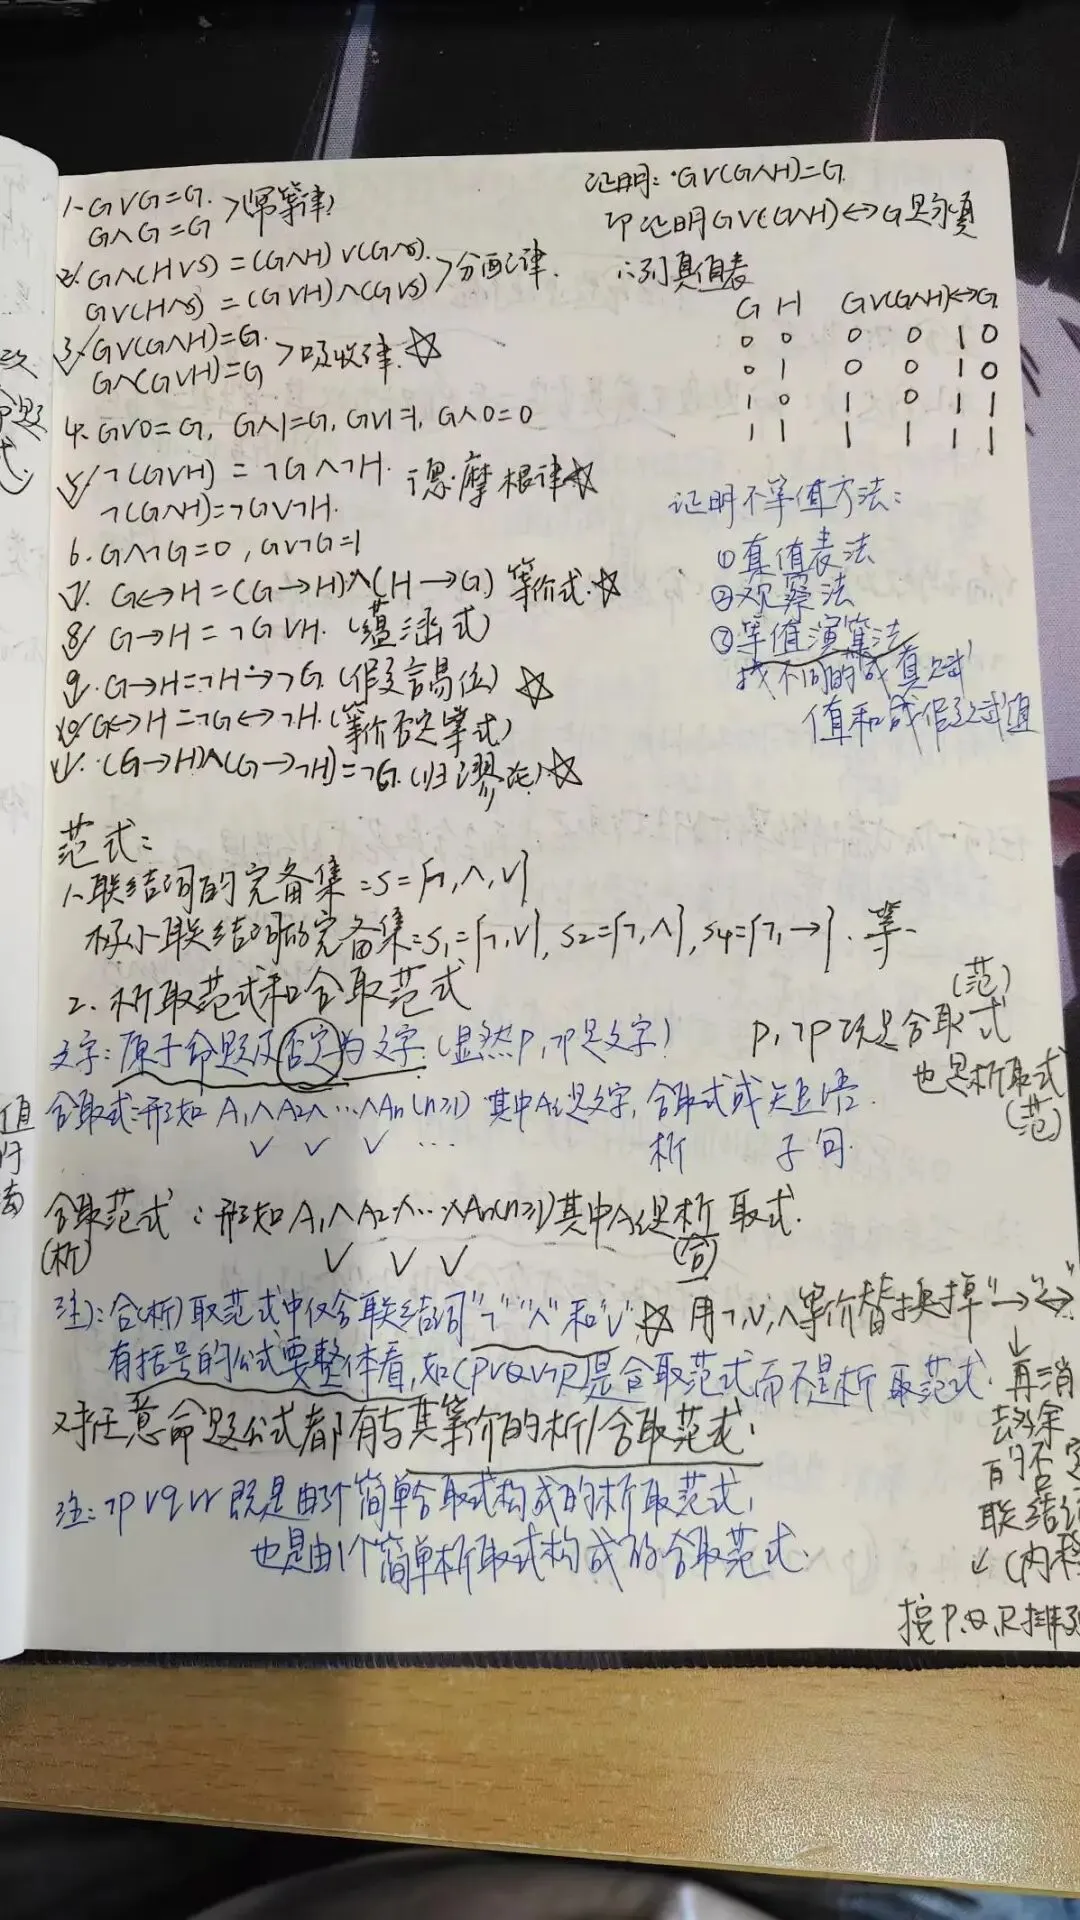 1. G∨G=G. >(幂等律)
G∧G=G
2. G∧(H∨S)=(G∧H)∨(G∧S). >分配律.
G∨(H∧S)=(G∨H)∧(G∨S)
3. G∨(G∧H)=G. >吸收律. ☆
G∧(G∨H)=G
4. G∨0=G, G∧1=G, G∨1=1, G∧0=0
5. ¬(G∨H)=¬G∧¬H. 德·摩根律☆
¬(G∧H)=¬G∨¬H.
6. G∧¬G=0, G∨¬G=1
7. G↔H=(G→H)∧(H→G) 等价式.☆
8. G→H=¬G∨H. (蕴涵式)
9. G→H=¬H→¬G. (假言易位) ☆
10. G↔H=¬G↔¬H. (等价否定等式)
11. (G→H)∧(G→¬H)=¬G. (归谬论)☆
证明: G∨(G∧H)=G.
即证明G∨(G∧H)↔G是永真
∴列真值表
G H G∨(G∧H)↔G
0 0 0 0 1 0
0 1 0 0 1 0
1 0 1 0 1 1
1 1 1 1 1 1
证明不等值方法:
①真值表法
②观察法
③等值演算法
找不同的成真赋
值和成假赋值
范式:
1.联结词的完备集:S={¬,∧,∨}
极小联结词的完备集:S₁={¬,∨}, S₂={¬,∧}, S₄={¬,→}. 等.
2. 析取范式和合取范式
文字:原子命题及否定为文字.(显然P,¬P是文字)
P,¬P既是合取式
(范)
也是析取式
(范)
合取式:形如 A₁∧A₂∧…∧Aₙ(n≥1) 其中Aᵢ是文字, 合取式或短语.
∨ ∨ ∨ … 析 子句.
合取范式:形如A₁∧A₂∧…∧Aₙ(n≥1)其中Aᵢ是析取式.
(析) ∨ ∨ ∨ (合)
注:合(析)取范式中仅含联结词"¬""∧"和"∨".☆ 用¬,∨,∧等价替换掉"→""↔"
有括号的公式要整体看,如(P∨Q∨¬R)是合取范式而不是析取范式.
↓
再消
去多余
的否定
联结词
↙(内移
按P,Q,R排列
对任意命题公式都有与其等价的析/合取范式.
注:¬P∨q∨r既是由3个简单合取式构成的析取范式,
也是由1个简单析取式构成的合取范式.
命题
式.
值